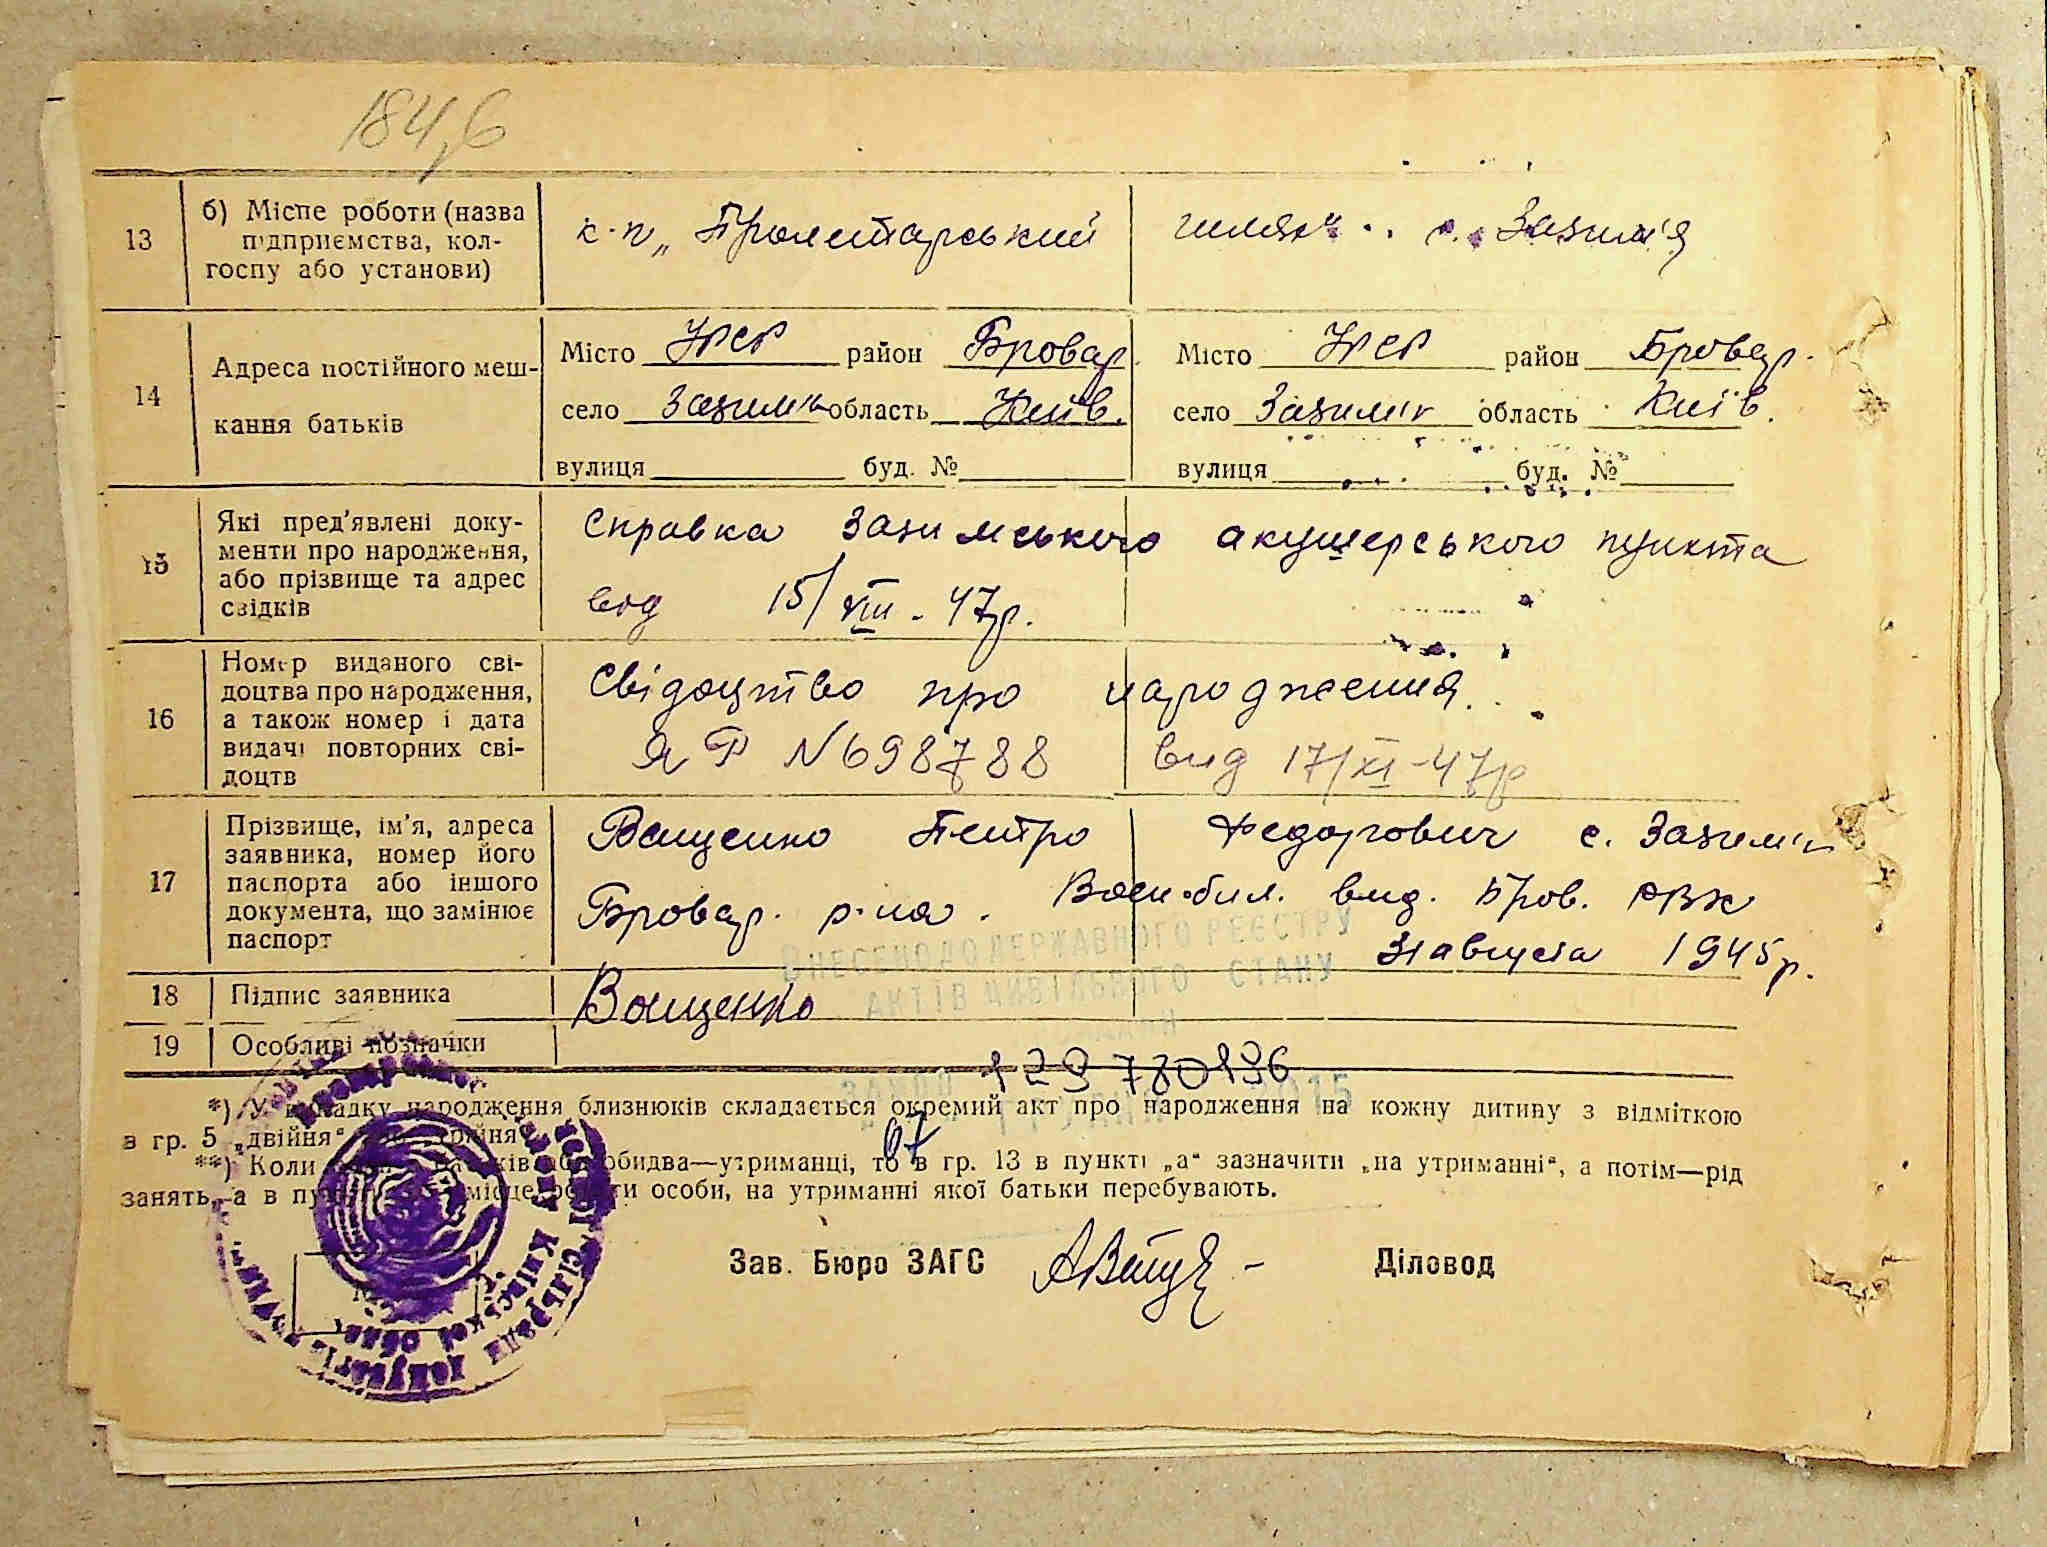 184,б
13 б) Місце роботи (назва підприємства, колгоспу або установи) к-п „Пролетарський шлях“ с. Зазим'я
14 Адреса постійного мешкання батьків
Місто УРСР район Бровар. Місто УРСР район Бровар.
село Зазим'я область Київ. село Зазим'я область Київ.
вулиця буд. № вулиця буд. №
15 Які пред'явлені документи про народження, або прізвище та адрес свідків
Справка Зазимського акушерського пункта
від 15/VIII-47р.
16 Номер виданого свідоцтва про народження, а також номер і дата видачі повторних свідоцтв
Свідоцтво про народження
ЯР N 698788 від 17/XI-47р
17 Прізвище, ім'я, адреса заявника, номер його паспорта або іншого документа, що замінює паспорт
Ващенко Петро Федорович с. Зазим'я
Бровар. р-на. Воен.бил. вид. Бров. РВК
31 августа 1945р.
ВНЕСЕНО ДО ДЕРЖАВНОГО РЕЄСТРУ
АКТІВ ЦИВІЛЬНОГО СТАНУ
18 Підпис заявника Ващенко
19 Особливі позначки
129 780196
*) У випадку народження близнюків складається окремий акт про народження на кожну дитину з відміткою
в гр. 5 „двійня“ або „трійня“
07
**) Коли один з батьків або обидва—утриманці, то в гр. 13 в пункті „а“ зазначити „на утриманні“, а потім—рід
занять, а в пункті місце роботи особи, на утриманні якої батьки перебувають.
Зав. Бюро ЗАГС Діловод